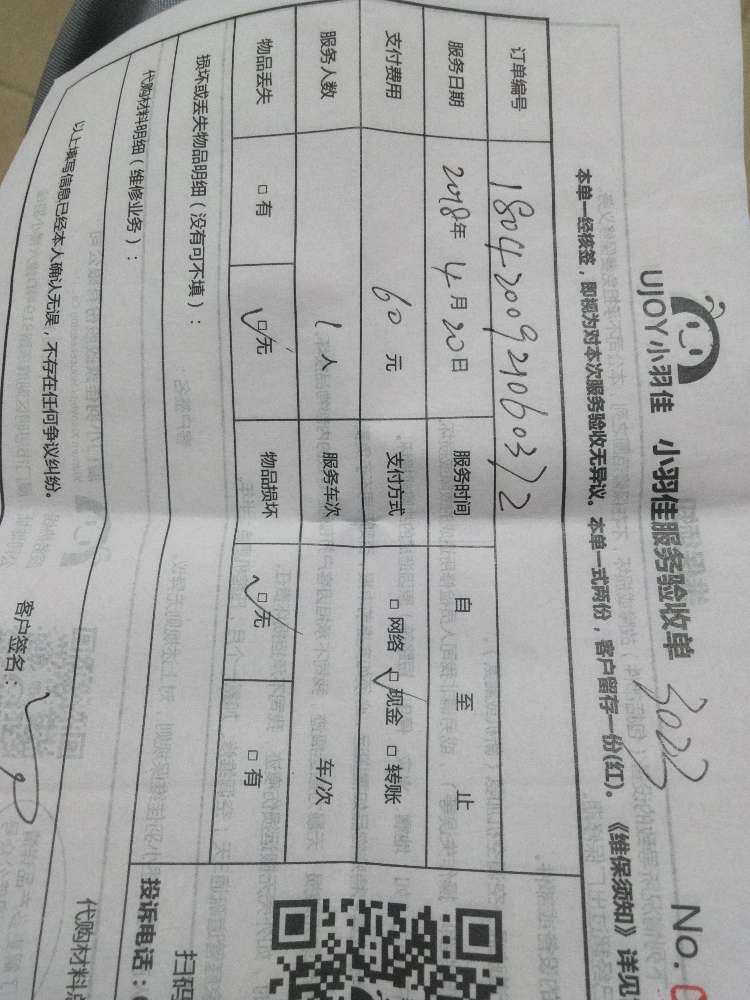 UJOY小羽佳 小羽佳服务验收单 3022 No.
本单一经核签，即视为对本次服务验收无异议。本单一式两份，客户留存一份(红)。《维保须知》详见
订单编号 1804200921060372
服务日期 2018年 4月 20日 服务时间 自 至 止
支付费用 60 元 支付方式 □ 网络 □ 现金 □ 转账
服务人数 1 人 服务车次 车/次
物品丢失 □ 有 □ 无 物品损坏 □ 无 □ 有
损坏或丢失物品明细（没有可不填）：
代购材料明细（维修业务）：
以上填写信息已经本人确认无误，不存在任何争议纠纷。
客户签名：
投诉电话：
扫码
代购材料